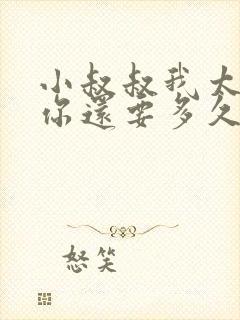 小叔叔我大
你還要多久
怒笑